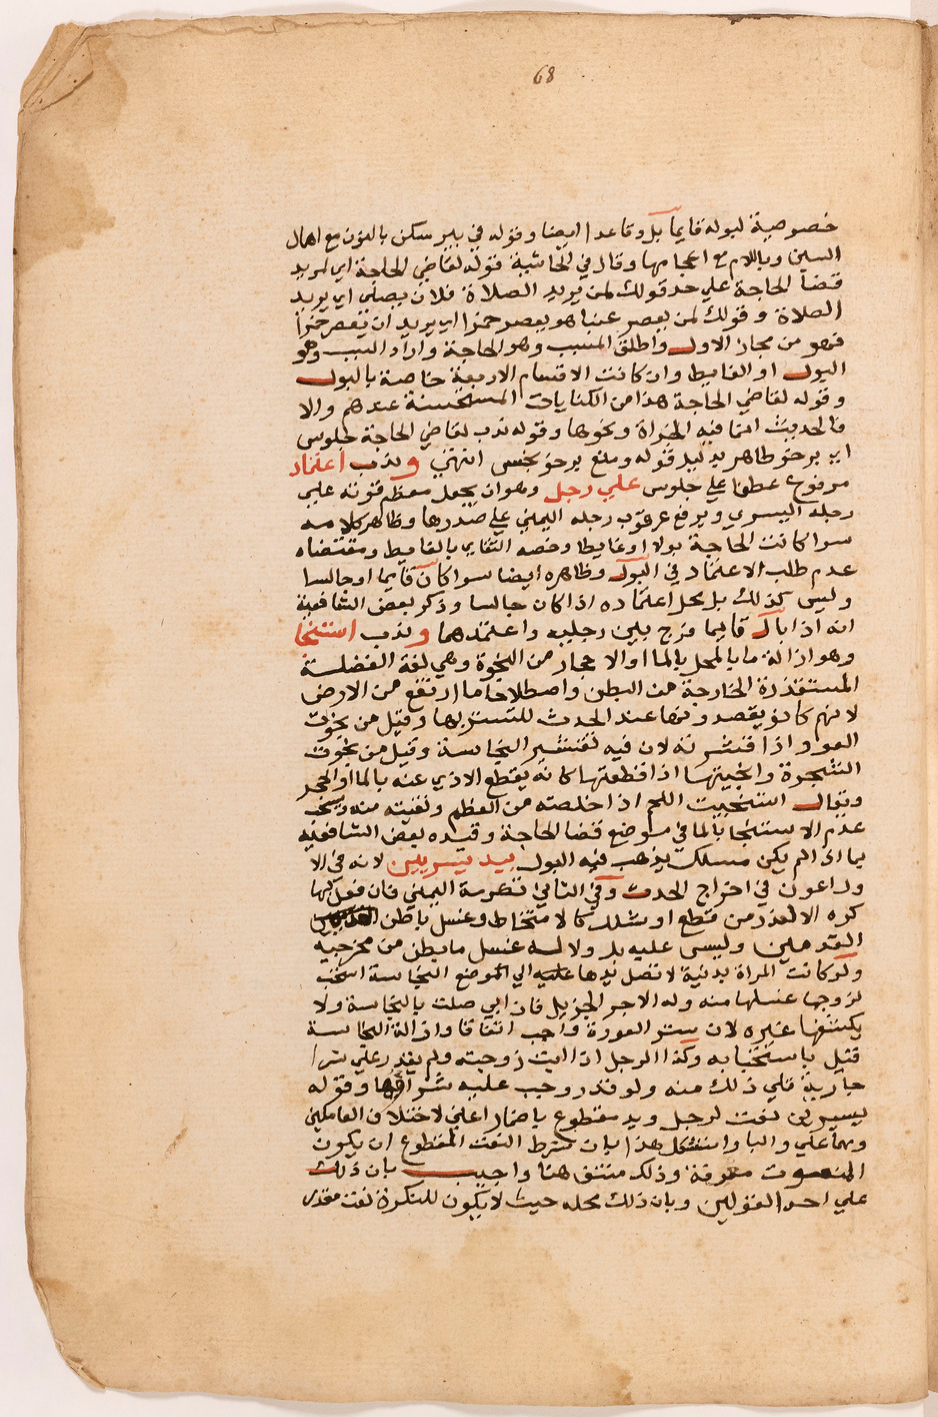 68
خصوصية لبوله قايما بل وقاعدا ايضا وقوله في بير سكن بالنون مع اهمال
السين وباللام مع اعجامها وقال في الحاشية قوله لقاضي الحاجة اي لمريد
قضا الحاجة علي حد قولك لمن يريد الصلاة فلان يصلي اي يريد
الصلاة وقولك لمن يعصر عنبا هو يعصر خمرا اي يريد ان يعصر خمرا
فهو من مجاز الاول واطلق المسبب وهو الحاجة واراد السبب وهو
البول او الغايط وان كانت الاقسام الاربعة خاصة بالبول
وقوله لقاضي الحاجة هذا من الكنايات المستحسنة عندهم والا
فالحديث انما فيه الخراة ونحوها وقوله ندب لقاضي الحاجة جلوس
اي برخو طاهر بدليل قوله ومنع برخو نجس انتهي وندب اعتماد
مرفوع عطفا علي جلوس علي رجل وهو ان يجعل معظم قوته علي
رجله اليسري ويرفع عرقوب رجله اليمني علي صدرها وظاهر كلامه
سوا كانت الحاجة بولا او غايطا وخصه التتاي بالغايط ومقتضاه
عدم طلب الاعتماد في البول وظاهره ايضا سوا كان قايما او جالسا
وليس كذلك بل محل اعتماده اذا كان جالسا وذكر بعض الشافعية
انه اذا بال قايما فرج بين رجليه واعتمدهما وندب استنجا
وهو ازالة ما بالمحل بالما او الاحجار من النجوة وهي لغة الفضلة
المستقذرة الخارجة من البطن واصطلاحا ما ارتفع من الارض
لانهم كانو يقصدونها عند الحدث للتستر بها وقيل من نجوت
العود اذا قشرته لان فيه تقشير النجاسة وقيل من نجوت
الشجرة وانجيتها اذا قطعتها كانه يقطع الاذي عنه بالما او الحجر
ويقال استنجيت اللحم اذا خلصته من العظم ونقيته منه ويستحب
عدم الاستنجا بالما في موضع قضا الحاجة وقيده بعض الشافعية
بما اذا لم يكن مسلك يذهب فيه البول بيد يسريين لانه في الا
ول اعون في اخراج الحدث وفي الثاني تكرمة اليمني فان فعل بها
كره الا لعذر من قطع او شلل كالامتخاط وغسل باطن
القدمين وليس عليه بل ولا له غسل ما بطن من مخرجيه
ولو كانت المراة بدنية لا تصل يدها الي الموضع النجاسة استحب
لزوجها غسلها منه وله الاجر الجزيل فان ابي صلت بالنجاسة ولا
يكشفها غيره لان ستر العورة واجب اتفاقا وازالة النجاسة
قيل باستحبابه وكذا الرجل اذا ابت زوجته ولم يقدر علي شرا
جارية تلي ذلك منه ولو قدر وجب عليه شراؤها وقوله
يسريين نعت لرجل ويد مقطوع باضمار اعني لاختلاف العاملين
وهما علي والبا واستشكل هذا بان شرط النعت المقطوع ان يكون
المنعوت معرفة وذلك منتف هنا واجيب بان ذلك
علي احد القولين وبان ذلك محله حيث لا يكون للنكرة نعت مقدم